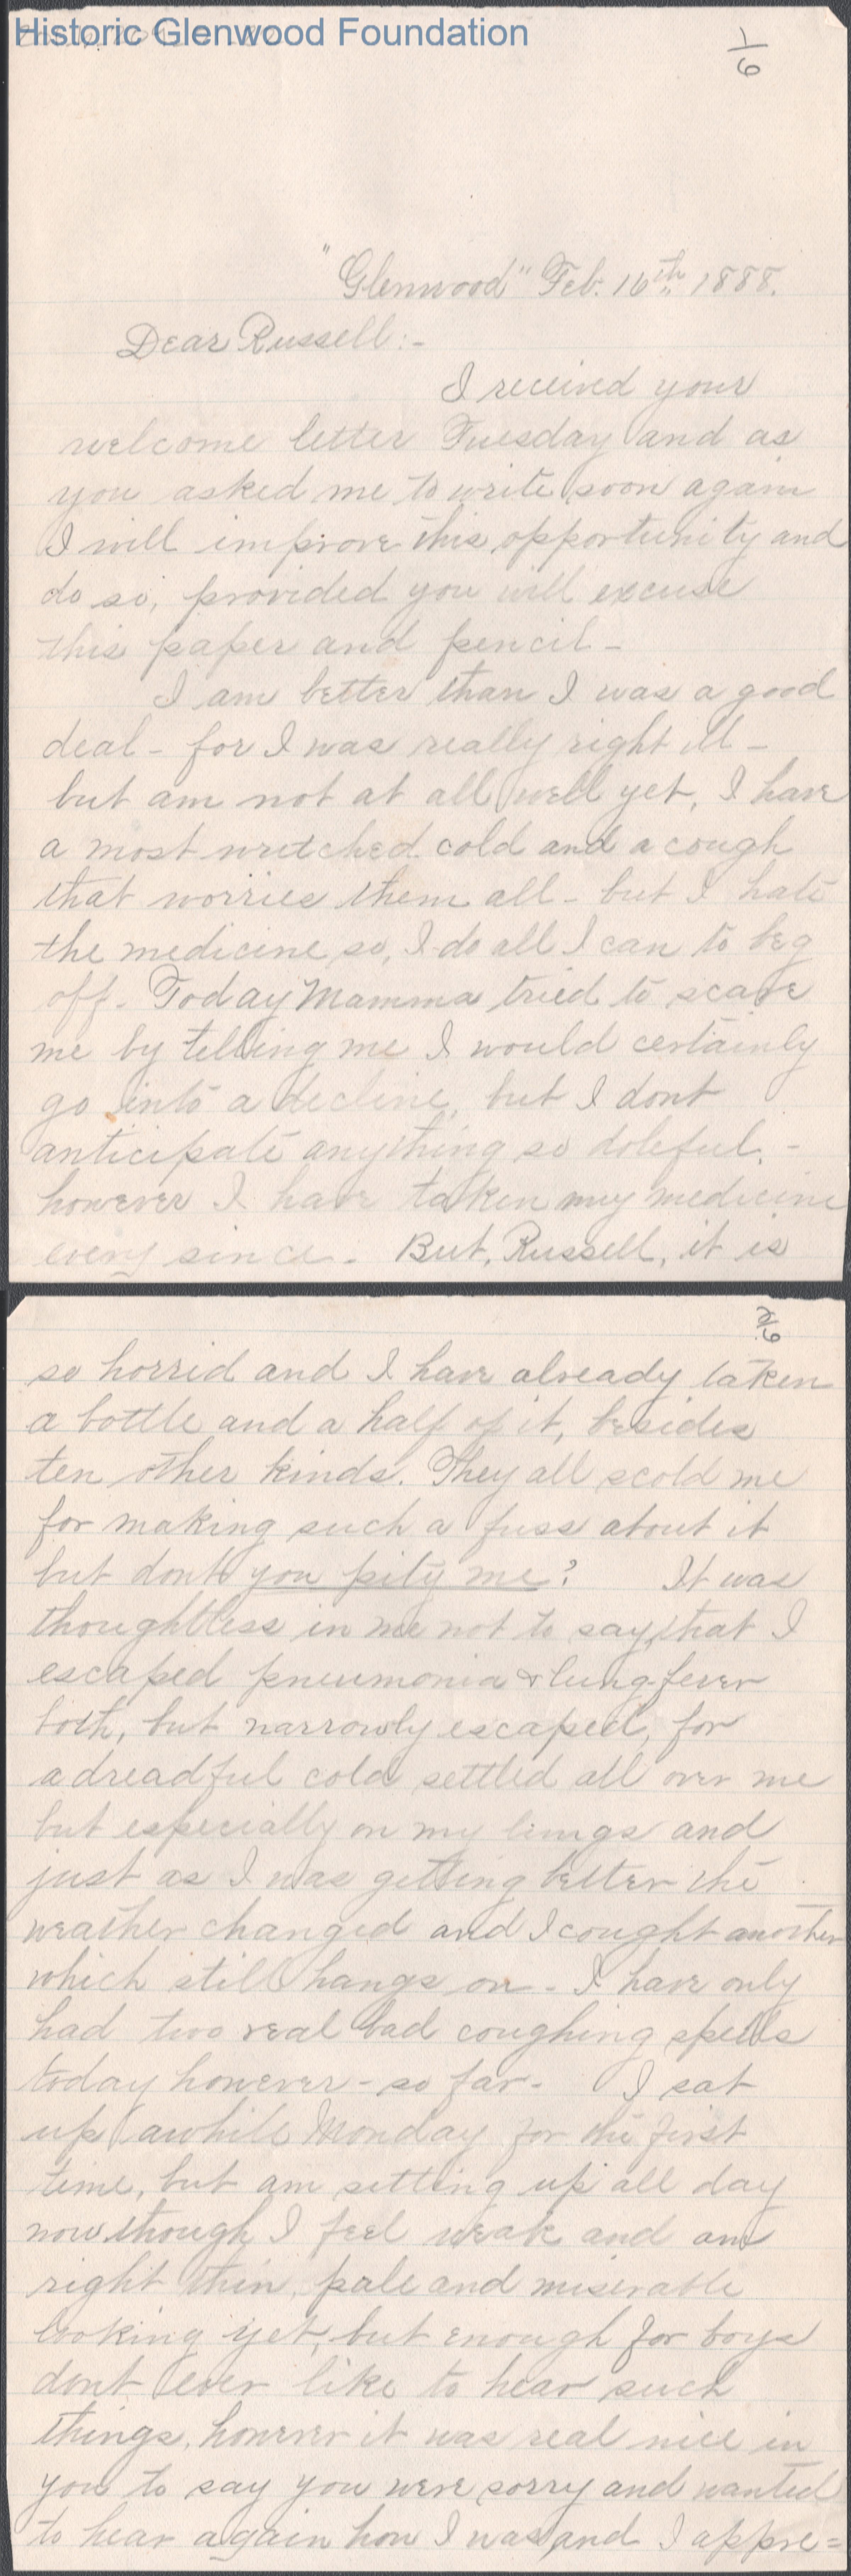 Historic Glenwood Foundation
1/6
"Glenwood" Feb. 16th 1888.
Dear Russell:-
I received your
welcome letter Tuesday and as
you asked me to write soon again
I will improve this opportunity and
do so, provided you will excuse
this paper and pencil -
I am better than I was a good
deal - for I was really right ill -
but am not at all well yet, I have
a most wretched cold and a cough
that worries them all - but I hate
the medicine so, I do all I can to beg
off. Today Mamma tried to scare
me by telling me I would certainly
go into a decline, but I dont
anticipate anything so doleful. -
however I have taken my medicine
every since. But, Russell, it is
2/6
so horrid and I have already taken
a bottle and a half of it, besides
ten other kinds. They all scold me
for making such a fuss about it
but dont you pity me? It was
thoughtless in me not to say, that I
escaped pneumonia & lung-fever
both, but narrowly escaped, for
a dreadful cold settled all over me
but especially on my lungs and
just as I was getting better the
weather changed and I cought another
which still hangs on - I have only
had two real bad coughing spells
today however - so far - I sat
up awhile Monday for the first
time, but am setting up all day
now though I feel weak and am
right thin, pale and miserable
looking yet, but enough for boys
dont ever like to hear such
things, however it was real nice in
you to say you were sorry and wanted
to hear again how I was, and I appre=